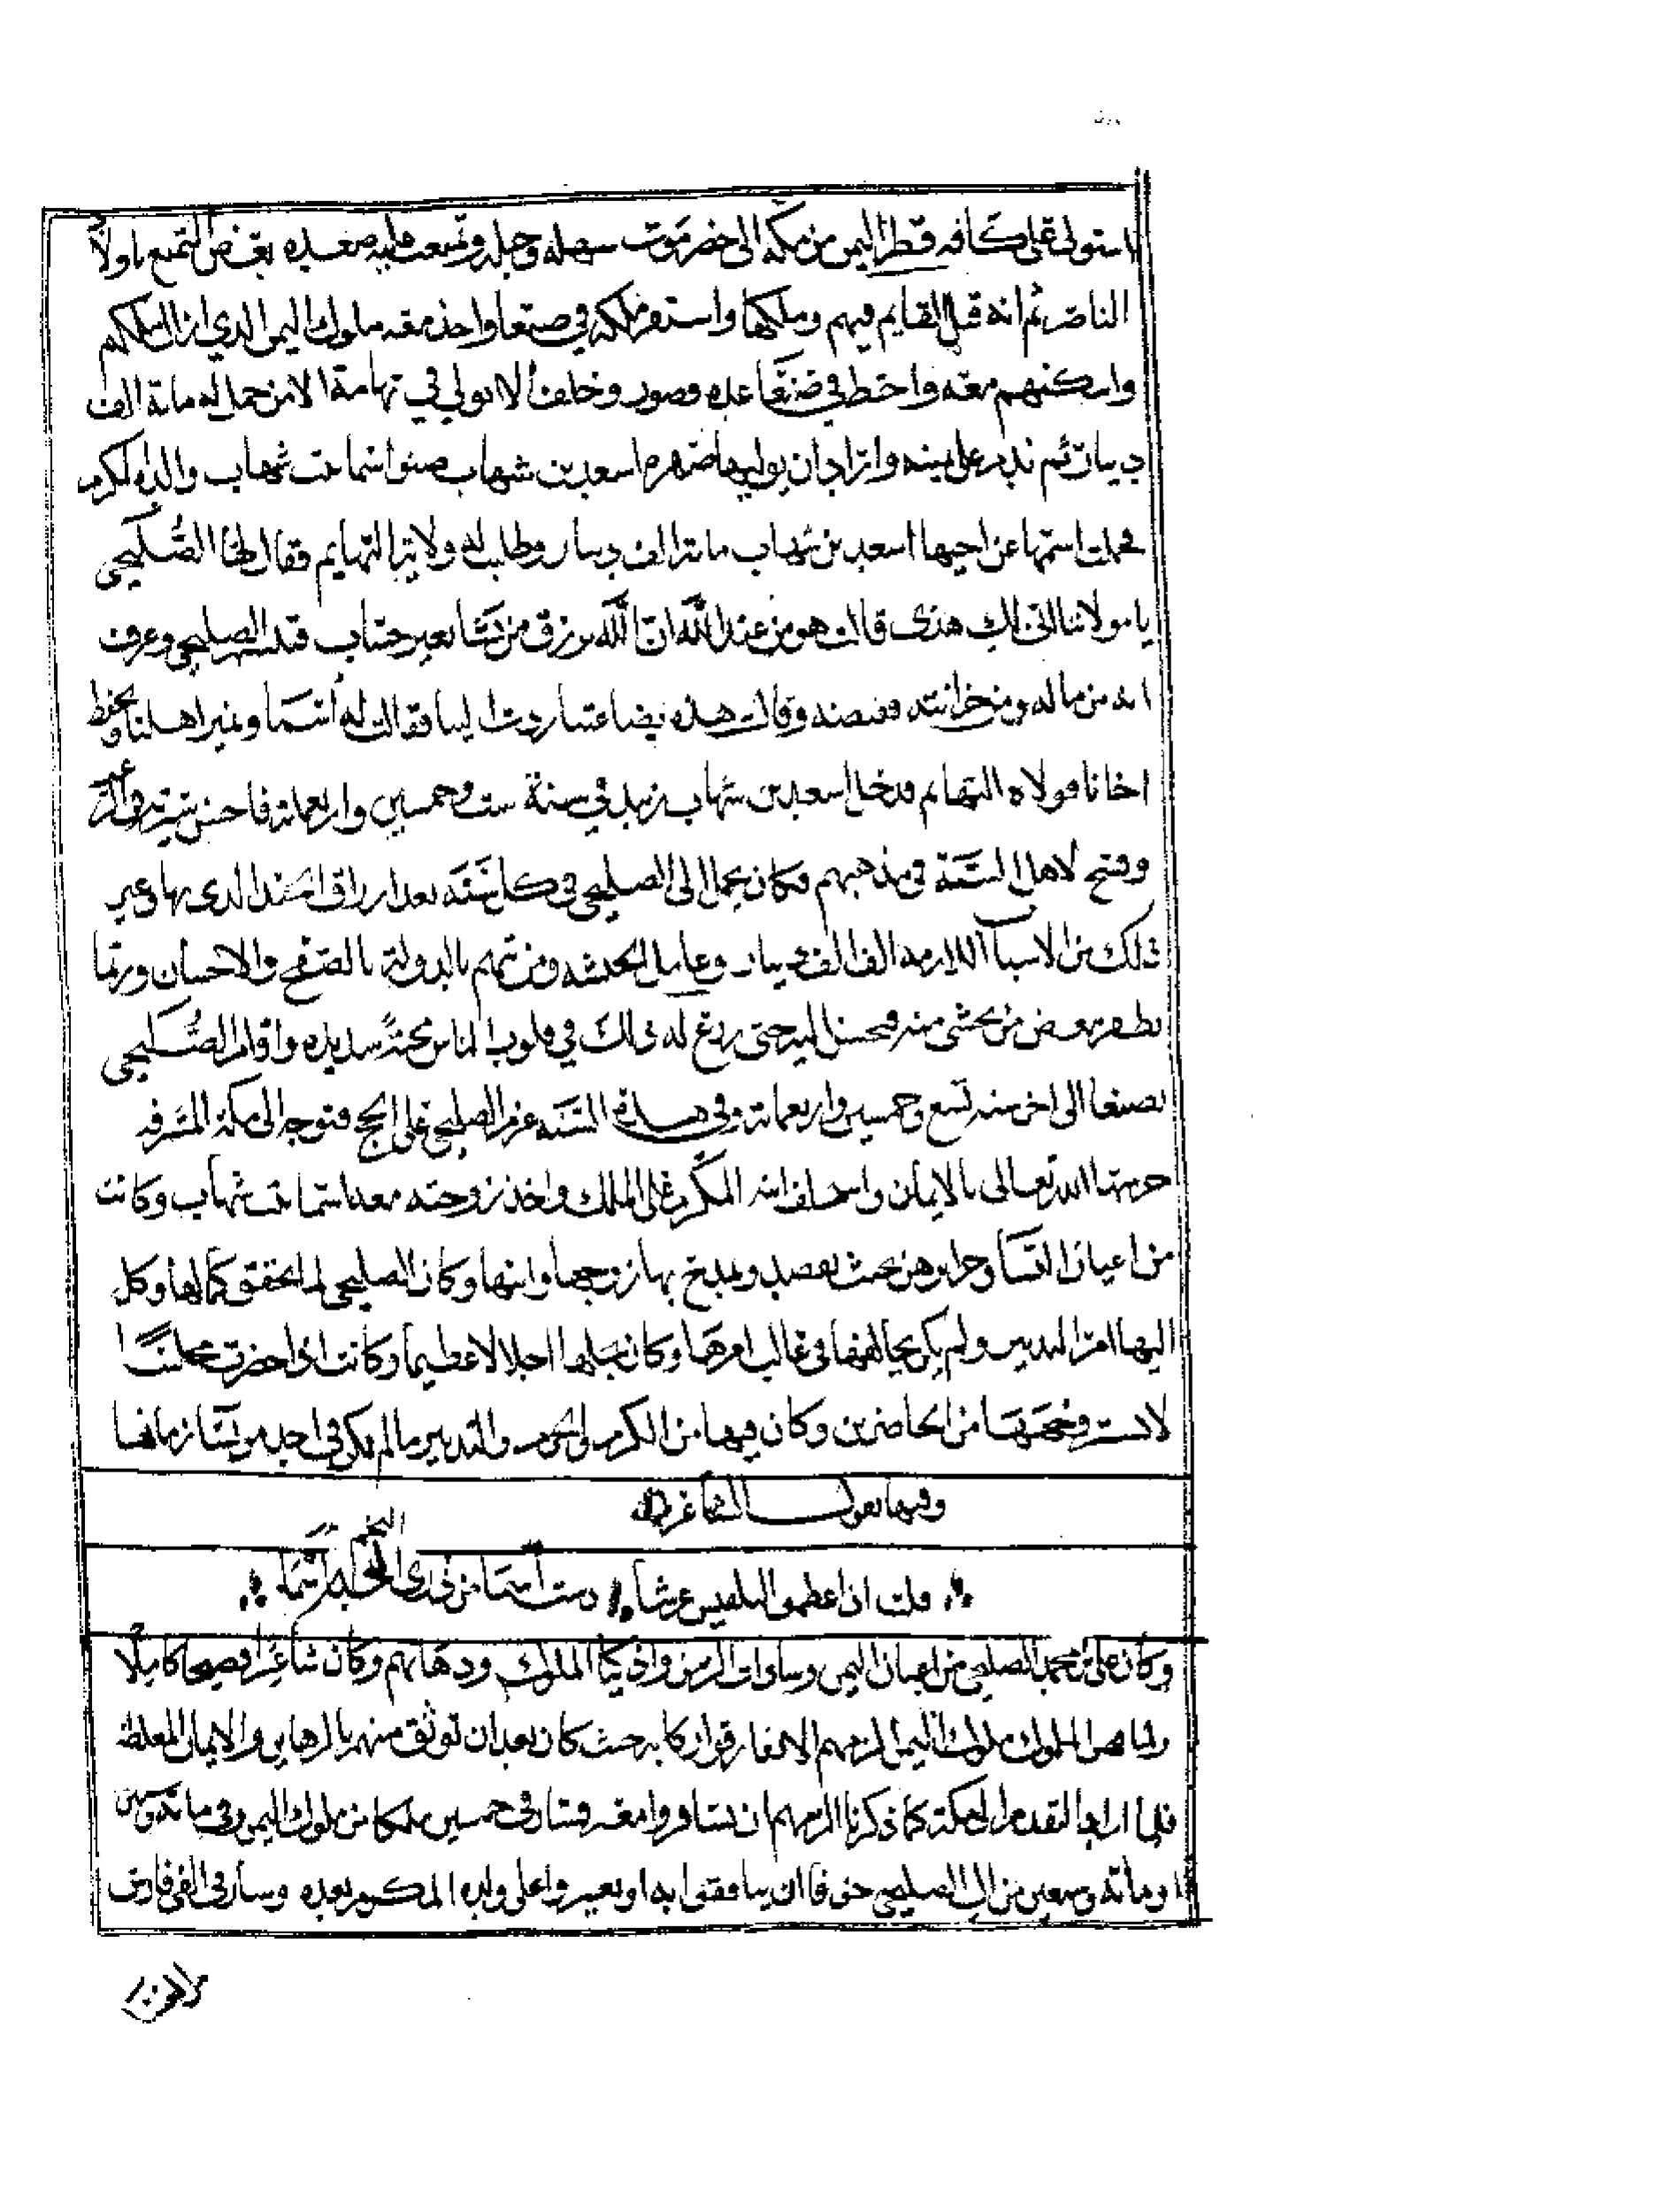 استولى على كافه قطر اليمن من مكه الى حضرموت سهله وجبله وتمنعت عليه صعده بعض التمنع باولاد
الناصر ثم انه قتل القايم فيهم وملكها واستقر ملكه في صنعا واخذ معه ملوك اليمن الذي ازال ملكهم
واسكنهم معه واختط في صنعا عده قصور وحلف ان لا يولي في تهامة الا من حمل له مائة الف
دينار ثم ندم على يمينه واراد ان يوليها صهره اسعد بن شهاب صنو اسما بنت شهاب والده المكرم
فحملت اسما عن اخيها اسعد بن شهاب مائة الف دينار وطلبت له ولاية التهايم فقال لها الصُّليحي
يا مولاتنا انى لك هذى قالت هو من عند الله ان الله يرزق من يشا بغير حساب فتبسم الصليحي وعرف
انه من ماله ومن خزانته فقبضه وقال هذه بضاعتنا ردت الينا فقالت له أسما ونمير اهلنا ونحفظ
اخانا فولاه التهايم فدخل اسعد بن شهاب زبيد في سنة ست وخمسين واربعمائة فاحسن سيرته في الرعيه
وفتح لاهل السنة في مذهبهم وكان يحمل الى الصليحي في كل سنه بعد ارزاق الجند الذى بها وغير
ذلك من الاسباب اللازمه الف الف دينار وعامل الحبشه ومن تهم بالدولة بالصفح والاحسان وربما
يظفر ببعض من يخشى منه فيحسن اليه حتى زرع له ذلك في قلوب الناس محبة شديده واقام الصُّليحي
بصنعا الى اخر سنه تسع وخمسين واربعمائة وفي هذه السنه عزم الصليحي على الحج فتوجه الى مكة المشرفه
حرسها الله تعالى بالايمان واستخلف ابنه المكرم على الملك واخذ زوجته معه اسما بنت شهاب وكانت
من اعيان النسآ وحرايرهن بحيث تقصد ويمدح بها زوجها وابنها وكان الصليحي لما تحقق كمالها وكل
اليها امر التدبير ولم يكن يخالفها في غالب امرها وكان يجلها اجلالا عظيما وكانت اذا حضرت مجلسًا
لا تستر وجهها من الحاضرين وكان فيها من الكرم والحزم والتدبير ما لم يكن في احد من نسا زمانها
وفيها يقول الشاعر
قلت اذ اعظموا لبلقيس عرشا دست أسما من ذرى النجم اسما
وكان علي بن محمد الصليحي من اعيان اليمن وسادات الزمن واذكيا الملوك ودهاتهم وكان شاعرا فصيحا كاملا
ولما قهر الملوك ملوك اليمن الزمهم الا يفارقوا ركابه حيث كان بعد ان توثق منهم بالرهاين والايمان المغلظه
فلما اراد التقدم الى مكة كما ذكرنا الزمهم ان يسافروا معه فسار في خمسين ملكا من ملوك اليمن وفي مائة وستين
او مائة وسبعين من ال الصليحي خوفا ان ينافقوا به او يغيروا على ولده المكرم بعده وسار في الفي فارس